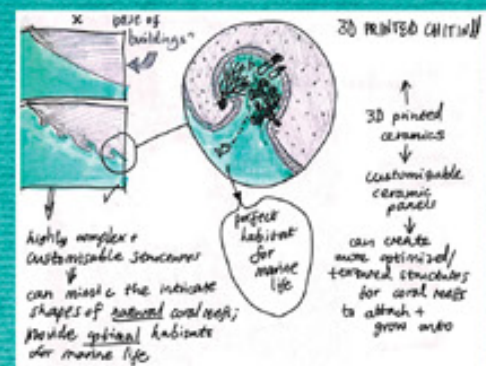 x
base of
buildings"
3D PRINTED CHITIN//
3D printed
ceramics
customisable
ceramic
panels
can create
more optimized/
textured structures
for coral reefs
to attach +
grow onto
perfect
habitat
for
marine
life
highly complex +
customisable structures
can mimic the intricate
shapes of natural coral reefs;
provide optimal habitats
for marine life